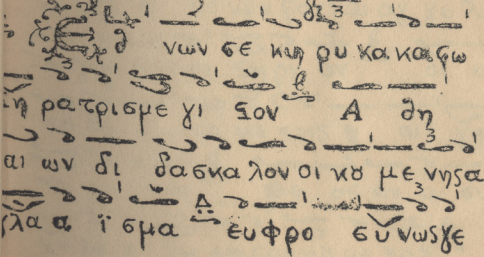 νων σε κηη ρυ κα κα ϛω
τη ρα τρισμε γι ϛον Α θη
αι ων δι δασκα λον οι κȣ με νηϛα
γλα α ϊ σμα ευφρο συ νωϛγε